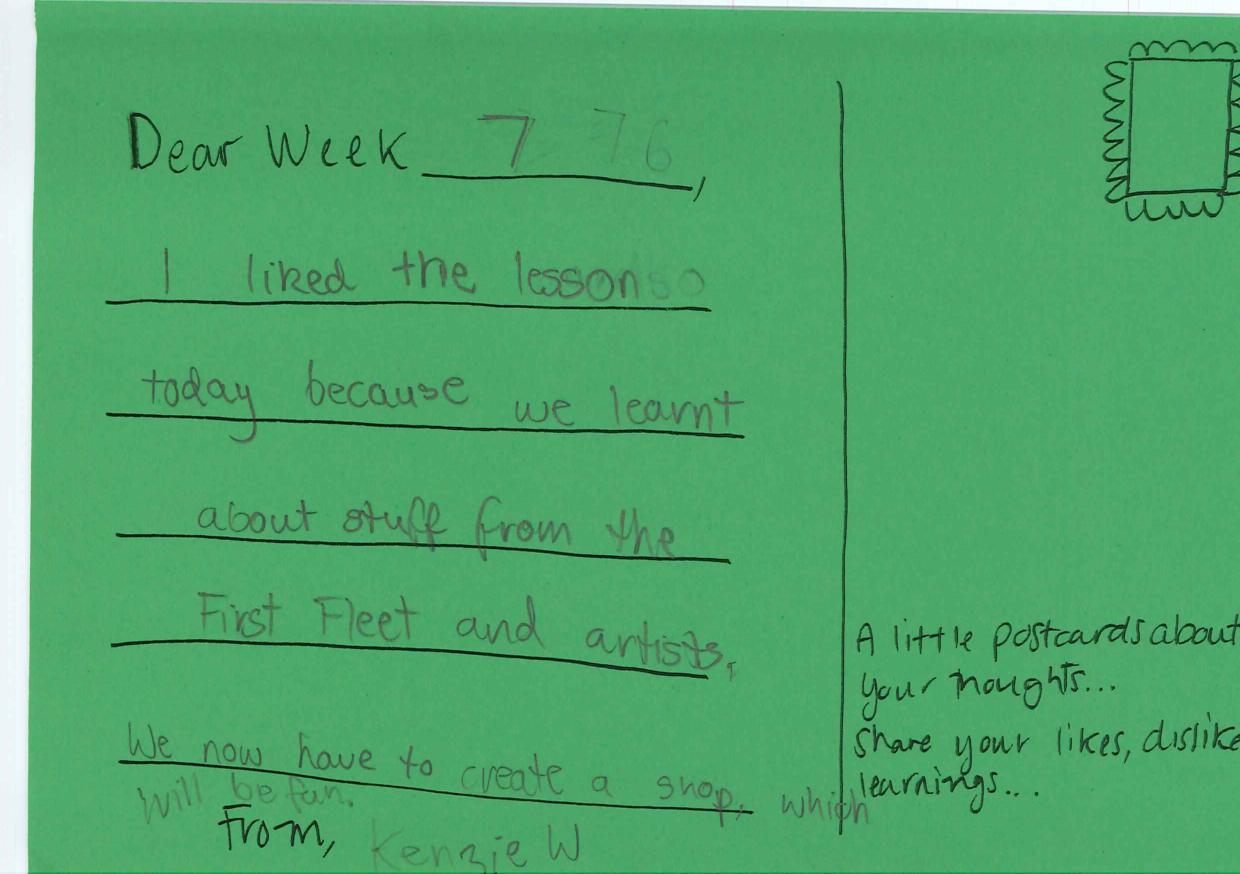 Dear Week 7 7 6,
I liked the lesson so
today because we learnt
about stuff from the
First Fleet and artists.
We now have to create a shop, which
will be fun.
From, Kenzie W
A little postcards about
your thoughts...
Share your likes, dislike
learnings...